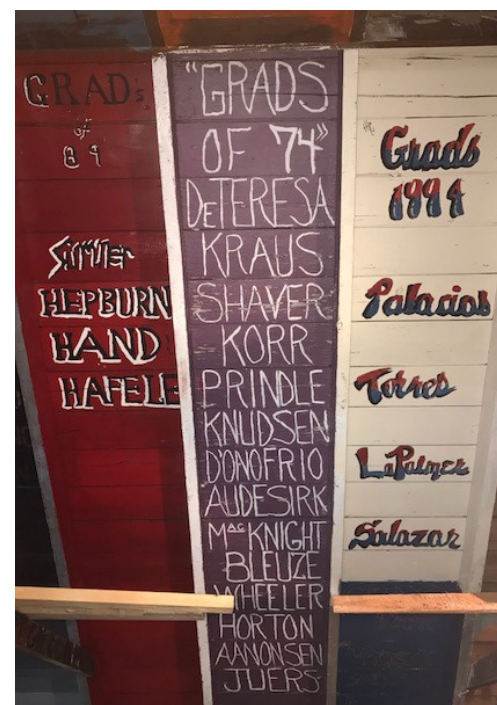 GRAD's
of
89
HEPBURN
HAND
HAFELE
"GRADS
OF 74"
DeTERESA
KRAUS
SHAVER
KORR
PRINDLE
KNUDSEN
D'ONOFRIO
AUDESIRK
MacKNIGHT
BLEUZE
WHEELER
HORTON
AANONSEN
JUERS
Grads
1994
Palacios
Torres
LaPalmer
Salazar